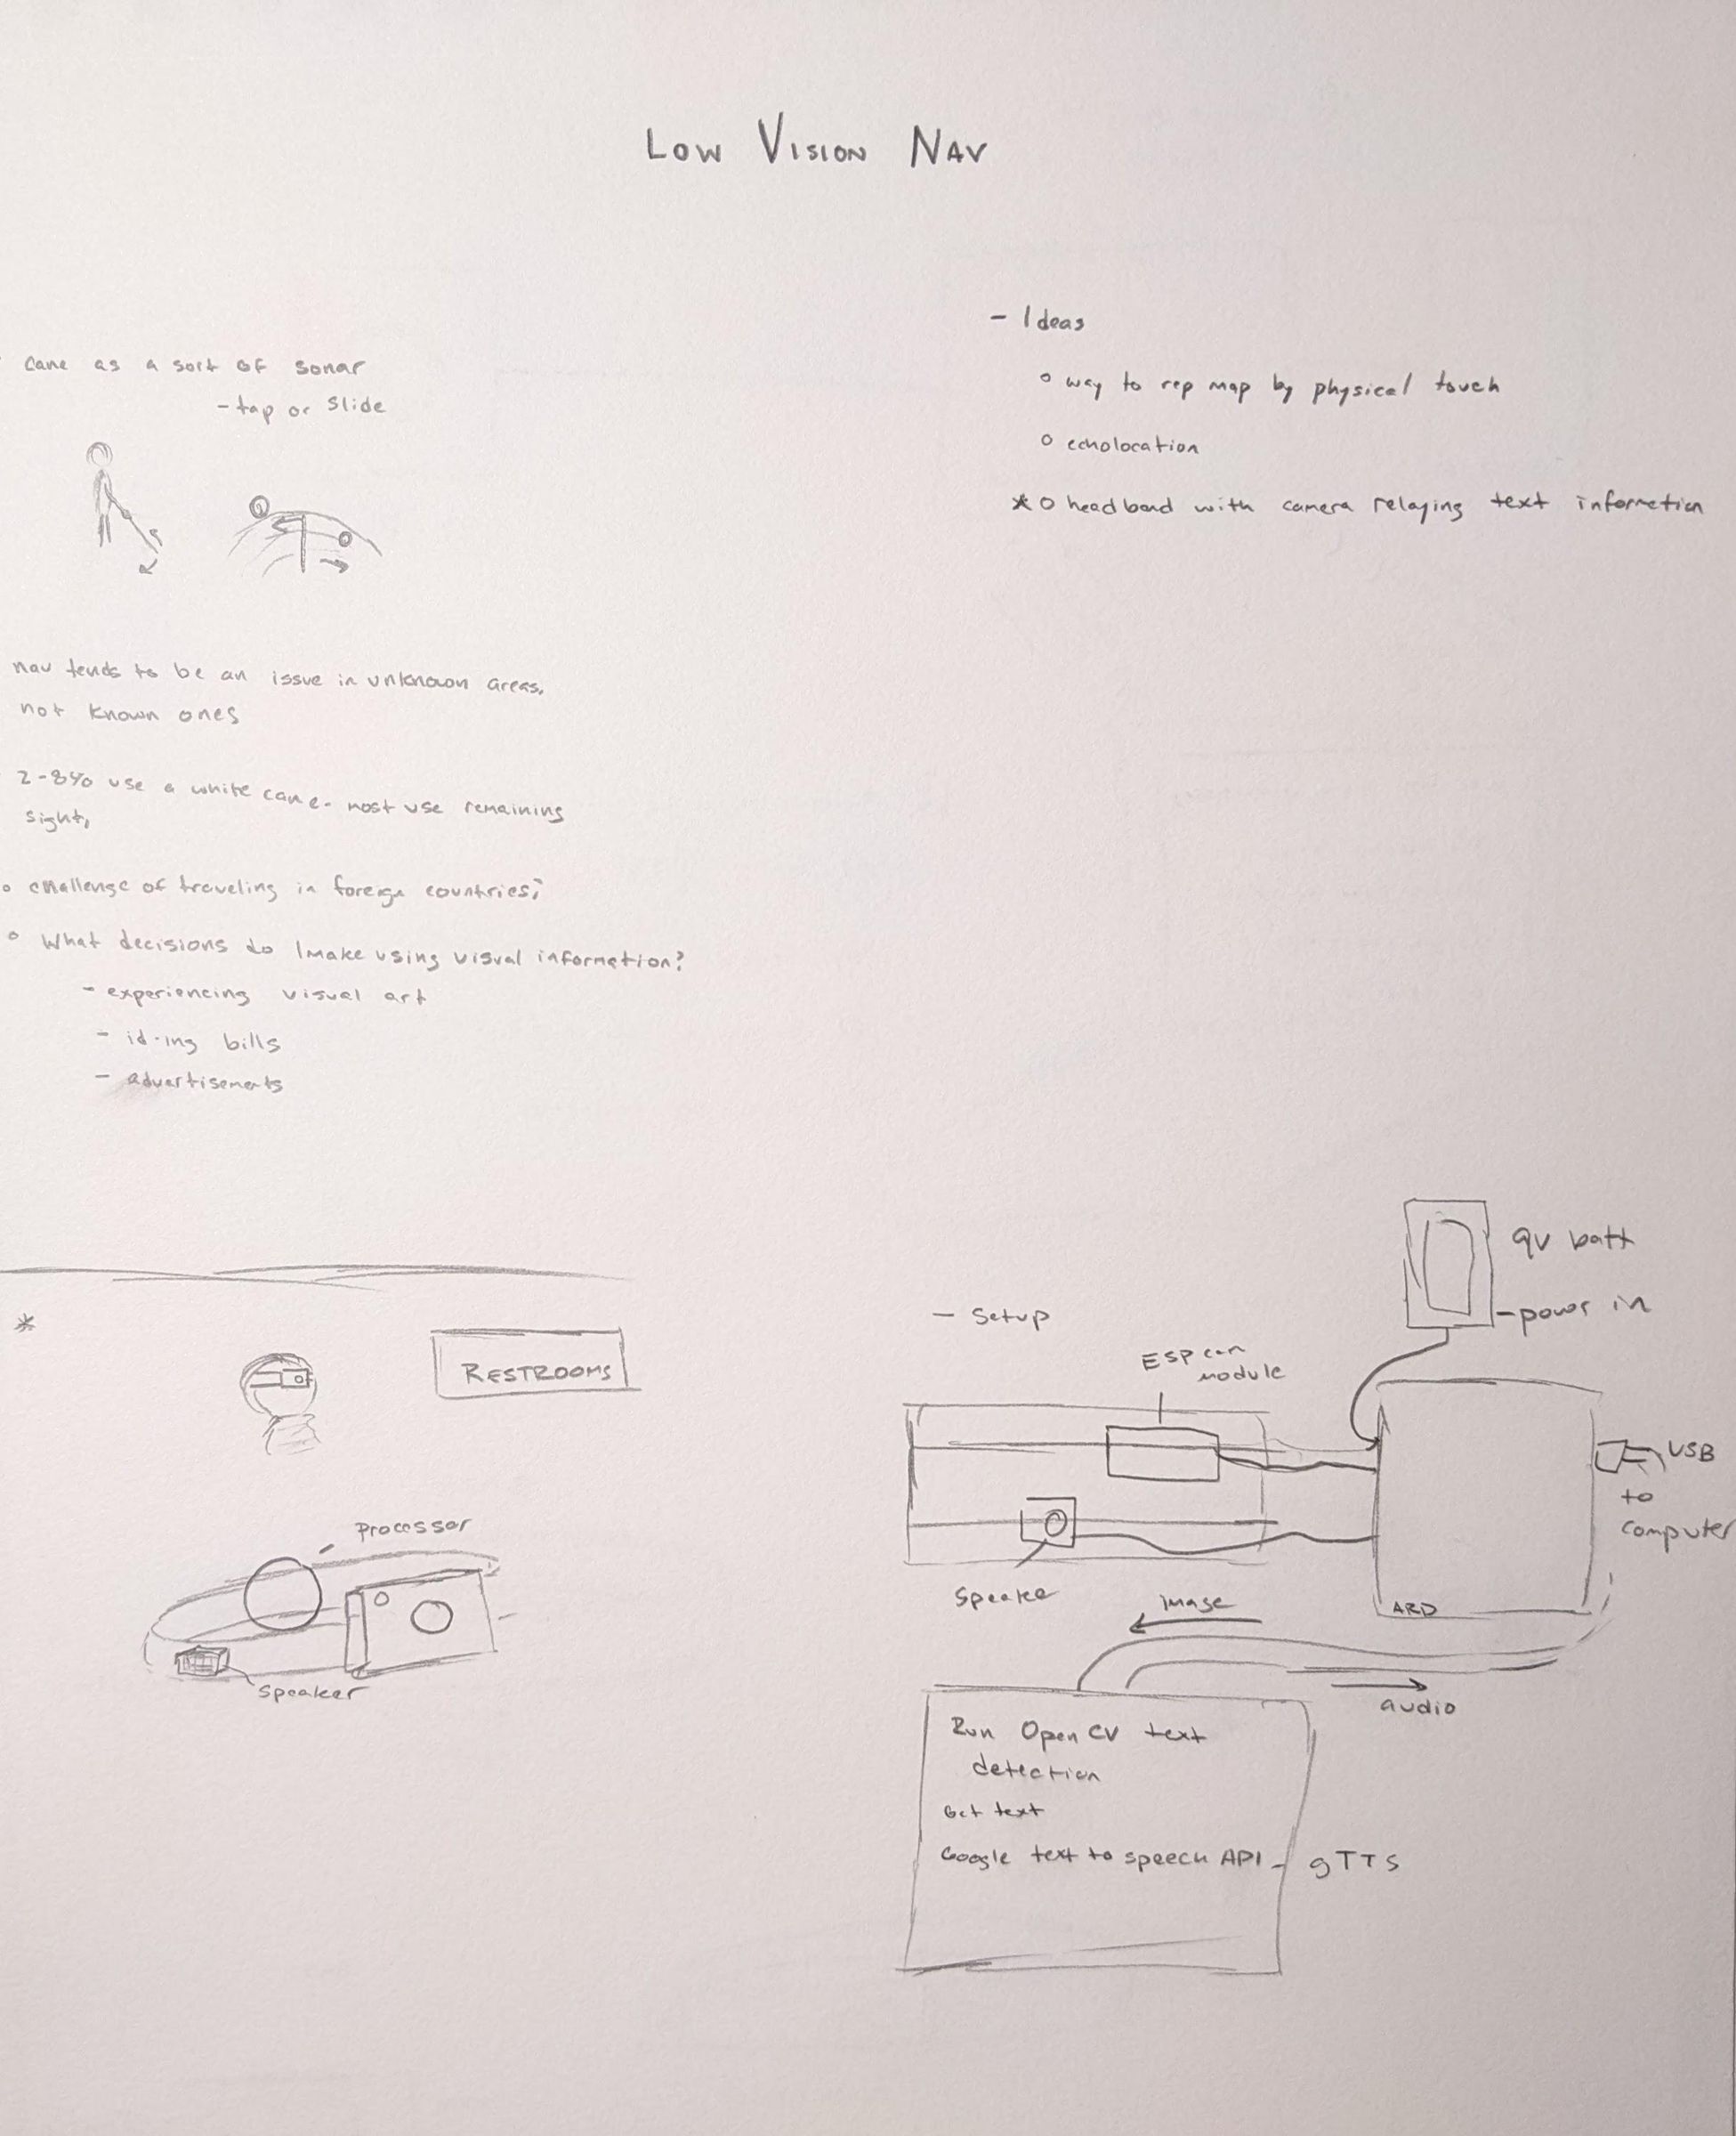 Low Vision Nav
cane as a sort of sonar
- tap or slide
nav tends to be an issue in unknown areas,
not known ones
2-8% use a white cane - most use remaining
sight,
o challenge of traveling in foreign countries;
o What decisions do I make using visual information?
- experiencing visual art
- id-ing bills
- advertisements
- Ideas
o way to rep map by physical touch
o echolocation
* o headband with camera relaying text information
*
RESTROOMS
Processor
Speaker
- Setup
9v batt
- power in
ESP cam
module
Speaker
USB
to
computer
ARD
image
audio
Run OpenCV text
detection
Get text
Google text to speech API - gTTS